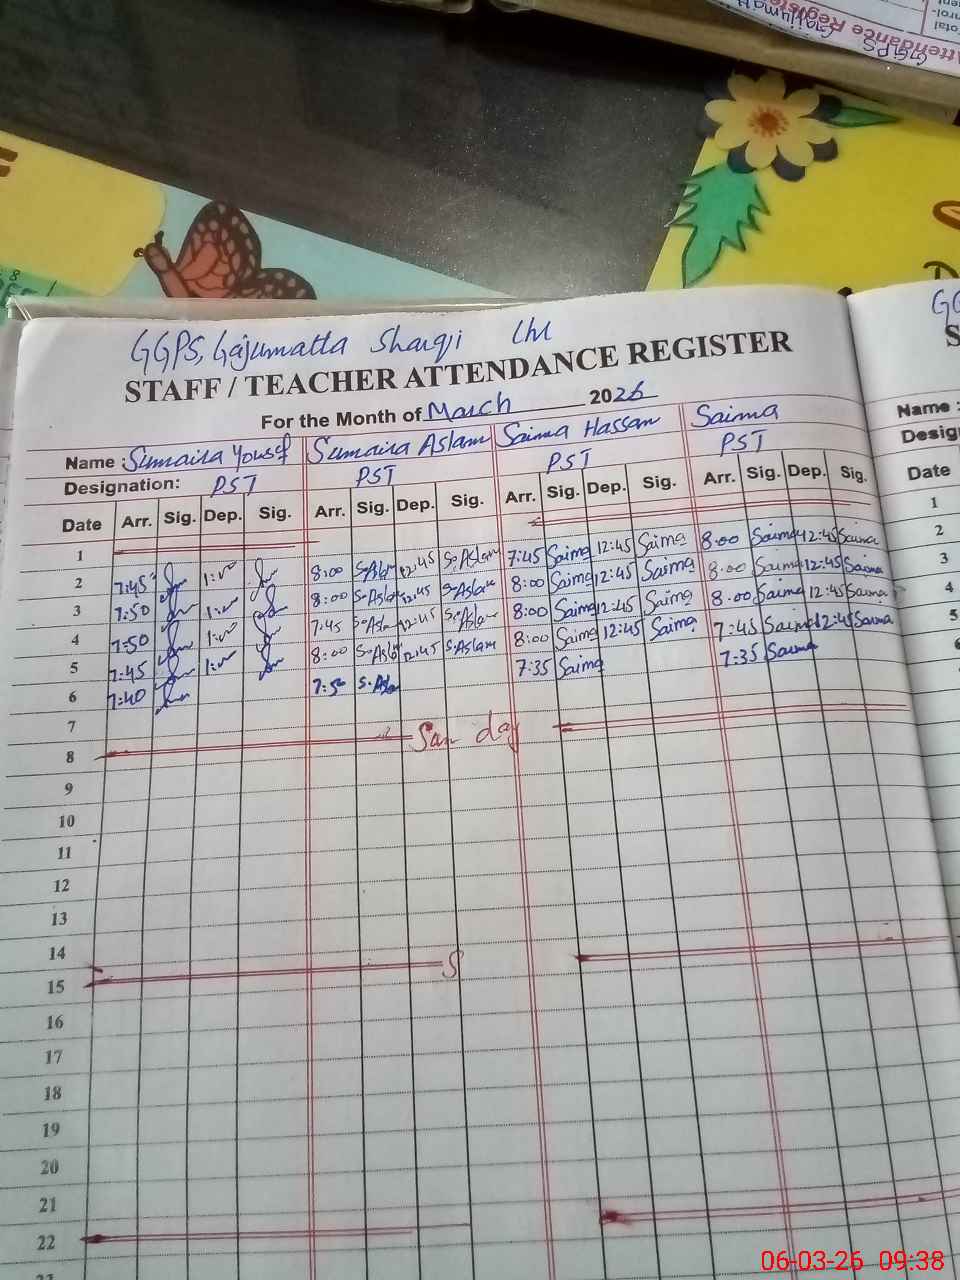 GGPS, Gajumatta Sharqi Lhr
STAFF / TEACHER ATTENDANCE REGISTER
For the Month of March 2026
Name : Sumaira Yousf Sumaira Aslam Saima Hassan Saima
Designation: PST PST PST PST
Date Arr. Sig. Dep. Sig. Arr. Sig. Dep. Sig. Arr. Sig. Dep. Sig. Arr. Sig. Dep. Sig.
1
2 7:45 1:00 8:00 S.Aslam 12:45 S.Aslam 7:45 Saima 12:45 Saima 8:00 Saima 12:45 Saima
3 7:50 1:00 8:00 S.Aslam 12:45 S.Aslam 8:00 Saima 12:45 Saima 8:00 Saima 12:45 Saima
4 7:50 1:00 7:45 S.Aslam 12:45 S.Aslam 8:00 Saima 12:45 Saima 8:00 Saima 12:45 Saima
5 7:45 1:00 8:00 S.Aslam 12:45 S.Aslam 8:00 Saima 12:45 Saima 7:45 Saima 12:45 Saima
6 7:40 7:50 S.Aslam 7:35 Saima 7:35 Saima
7
8 Sun day
9
10
11
12
13
14
15 S
16
17
18
19
20
21
22
Name :
Date
1
2
3
4
5
06-03-26 09:38